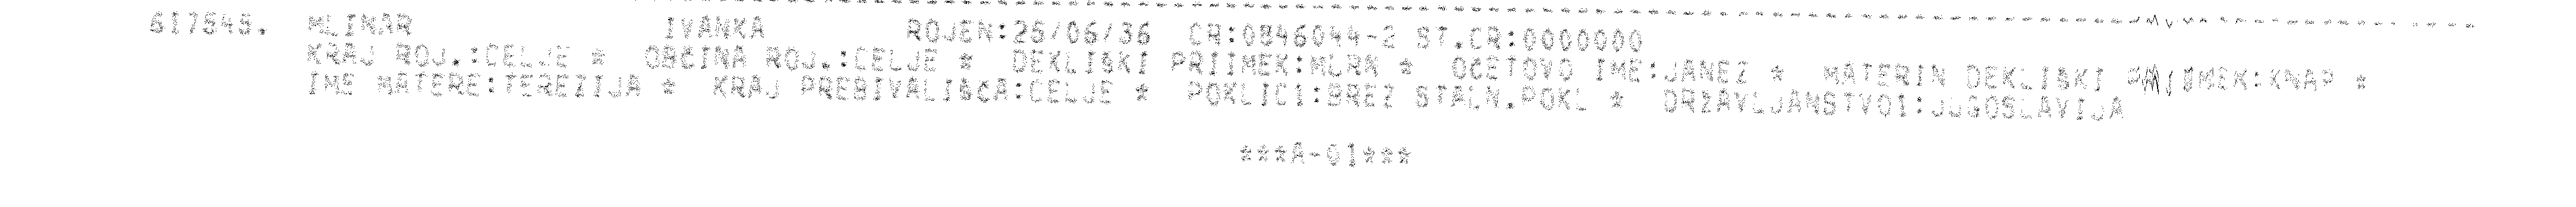 617545. MLINAR IVANKA ROJEN:25/06/36 CR:0846044-2 ST.CR:0000000
KRAJ ROJ.:CELJE * OBČINA ROJ.:CELJE * DEKLIŠKI PRIIMEK:MLRK * OČETOVO IME:JANEZ * MATERIN DEKLIŠKI PRIIMEK:KNAP *
IME MATERE:TEREZIJA * KRAJ PREBIVALIŠČA:CELJE * POKLIC1:BREZ STALN.POKL * DRŽAVLJANSTVO1:JUGOSLAVIJA
***A-01***